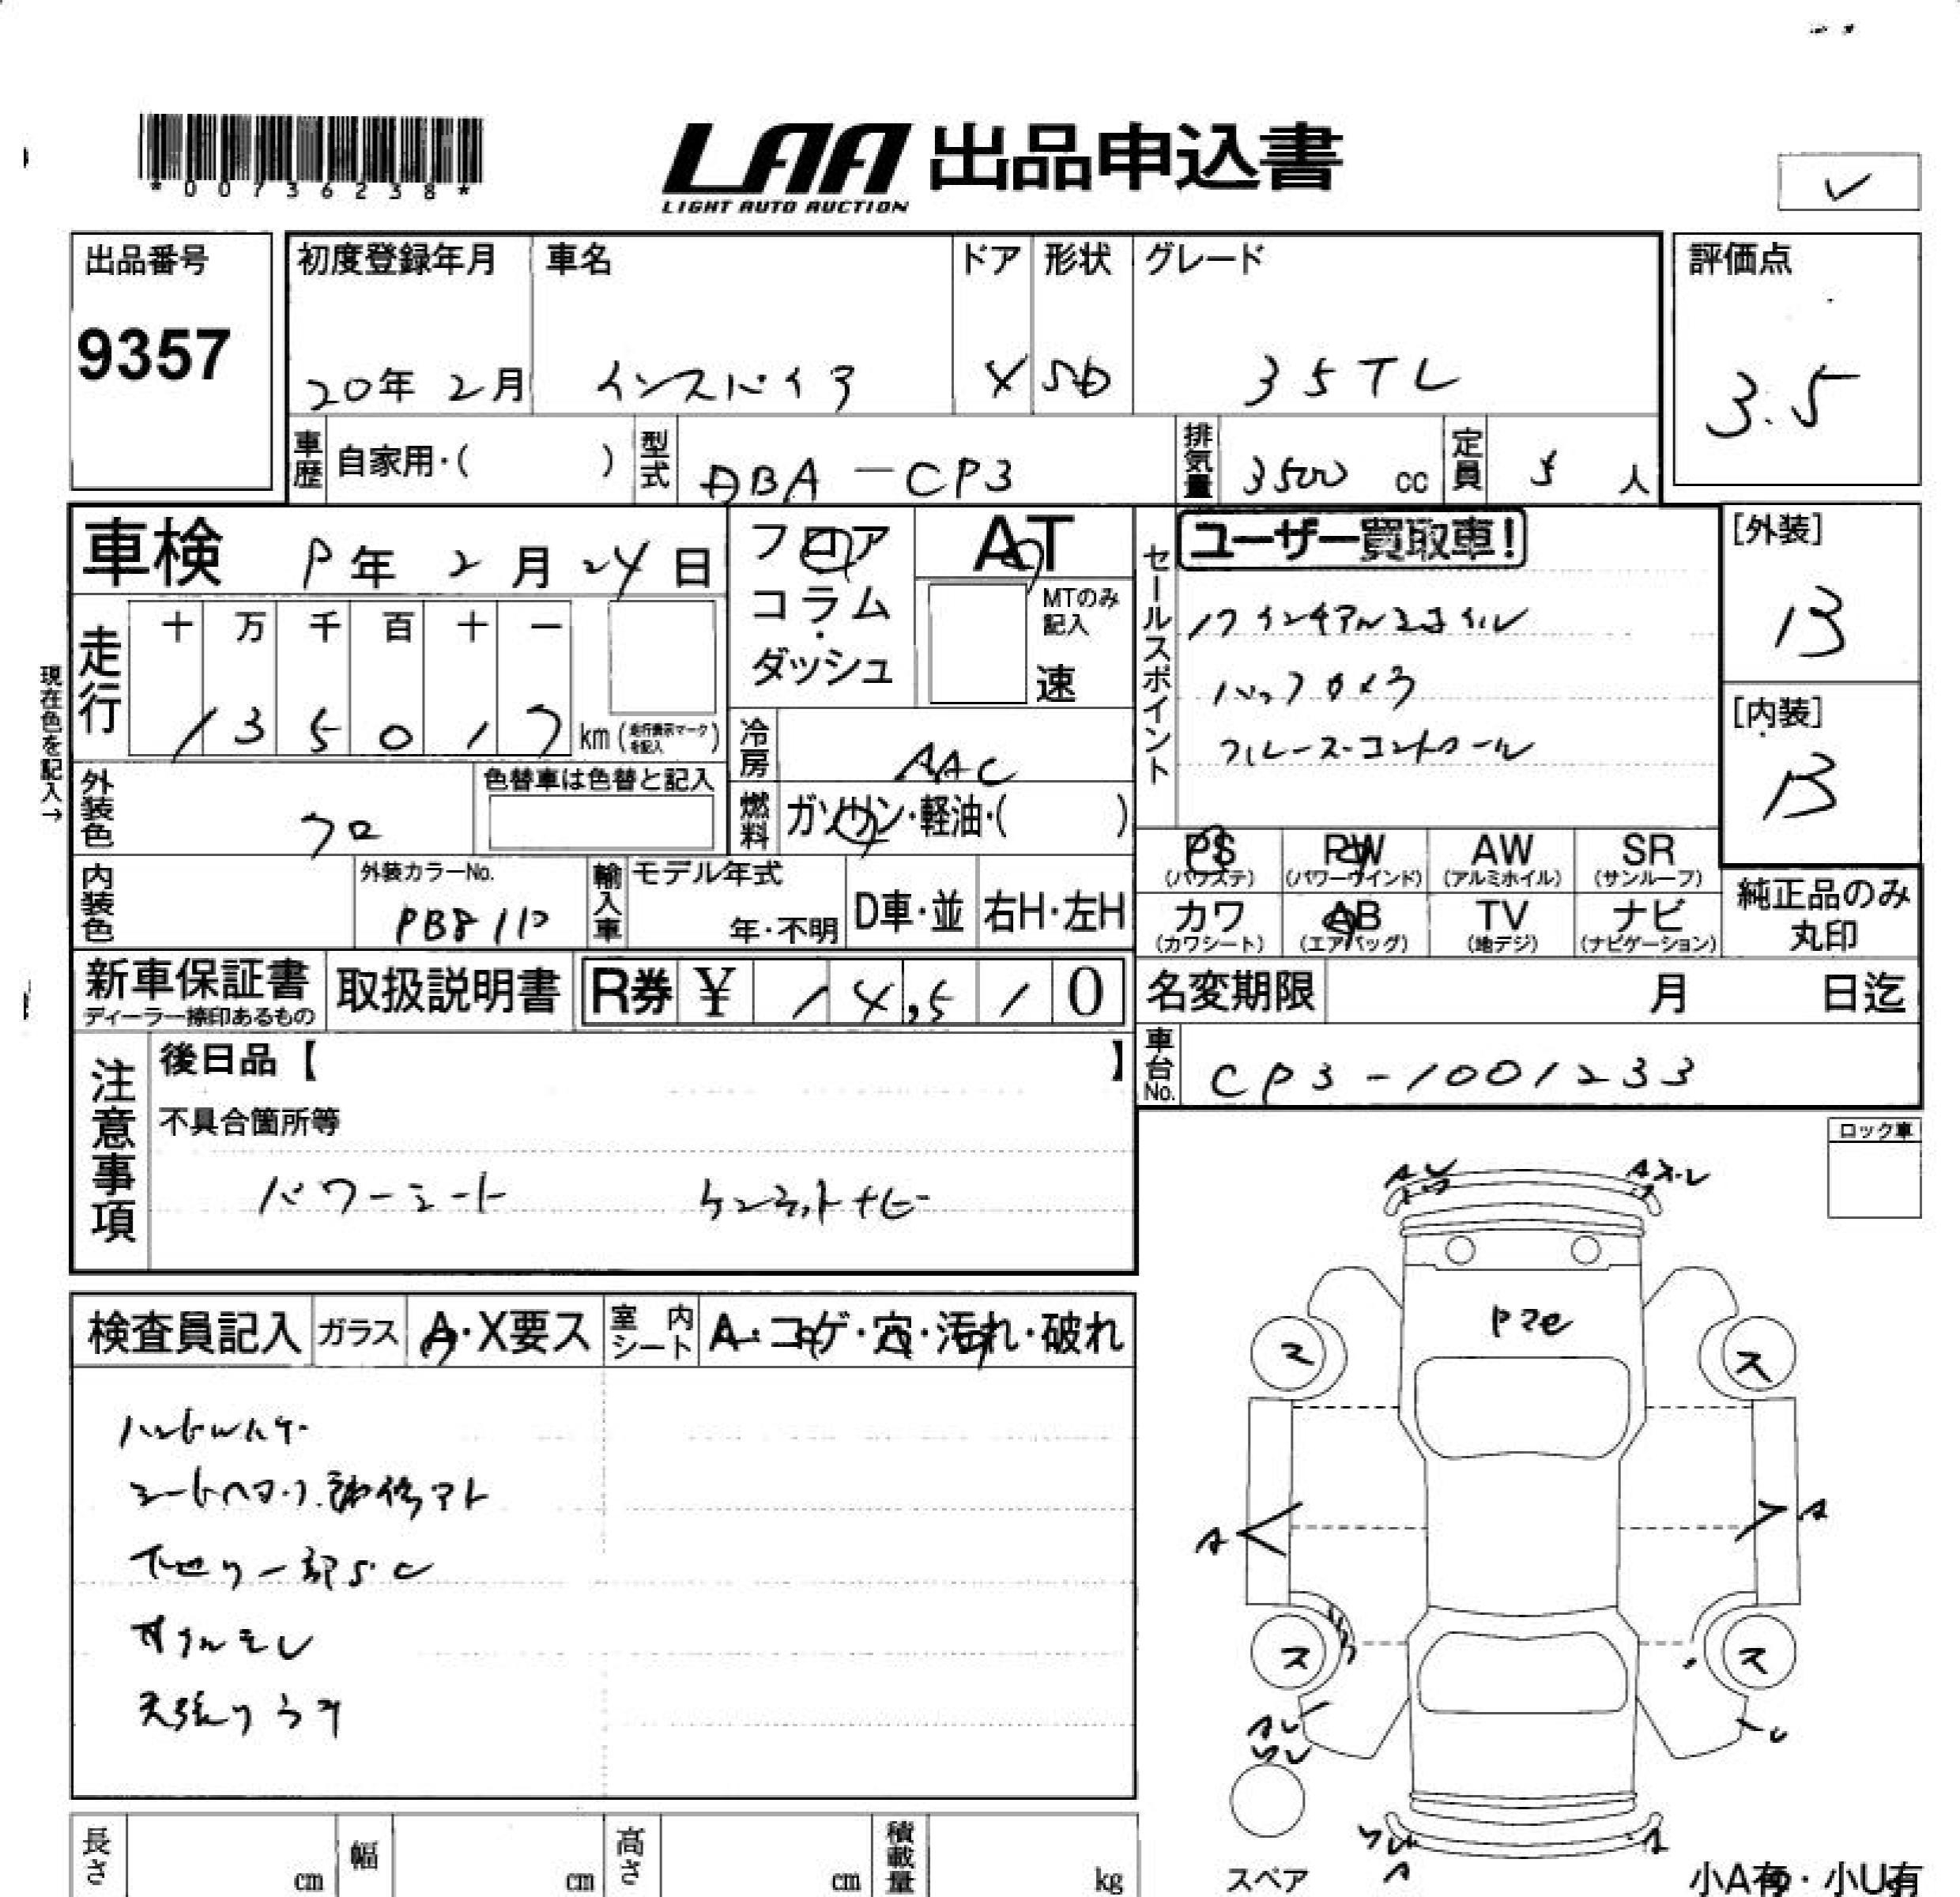 *00736238*
LAA 出品申込書
LIGHT AUTO AUCTION
出品番号
9357
初度登録年月
20年 2月
車名
インスパイア
ドア
4
形状
SD
グレード
35TL
評価点
3.5
車歴 自家用・( )
型式 DBA-CP3
排気量 3500 cc
定員 5 人
車検 P年 2月 24日
フロア
コラム
・
ダッシュ
AT
MTのみ
記入
速
セールスポイント
ユーザー買取車!
17インチアルミホイル
バックカメラ
クルーズ・コントロール
[外装]
B
[内装]
B
現在色を記入→
走行
十 万 千 百 十 一
1 3 5 0 1 7 km (走行表示マークを記入)
冷房 AAC
外装色 クロ
色替車は色替と記入
燃料 ガソリン・軽油・( )
PS (パワステ)
PW (パワーウインド)
AW (アルミホイル)
SR (サンルーフ)
内装色
外装カラーNo.
輸入車
モデル年式
年・不明
D車・並
右H・左H
カワ (カワシート)
AB (エアバッグ)
TV (地デジ)
ナビ (ナビゲーション)
純正品のみ
丸印
新車保証書
ディーラー捺印あるもの
取扱説明書
R券 ¥ 14,510
名変期限 月 日迄
注意事項
後日品【 】
車台No. CP3-1001233
不具合箇所等
パワーシート
ロック車
検査員記入
ガラス A・X要ス
室内シート A・コゲ・穴・汚れ・破れ
ハンドルハゲ
天張り
A
A
ス ス
A A
ス ス
A
スペア
小A有・小U有
長さ cm
幅 cm
高さ cm
積載量 kg